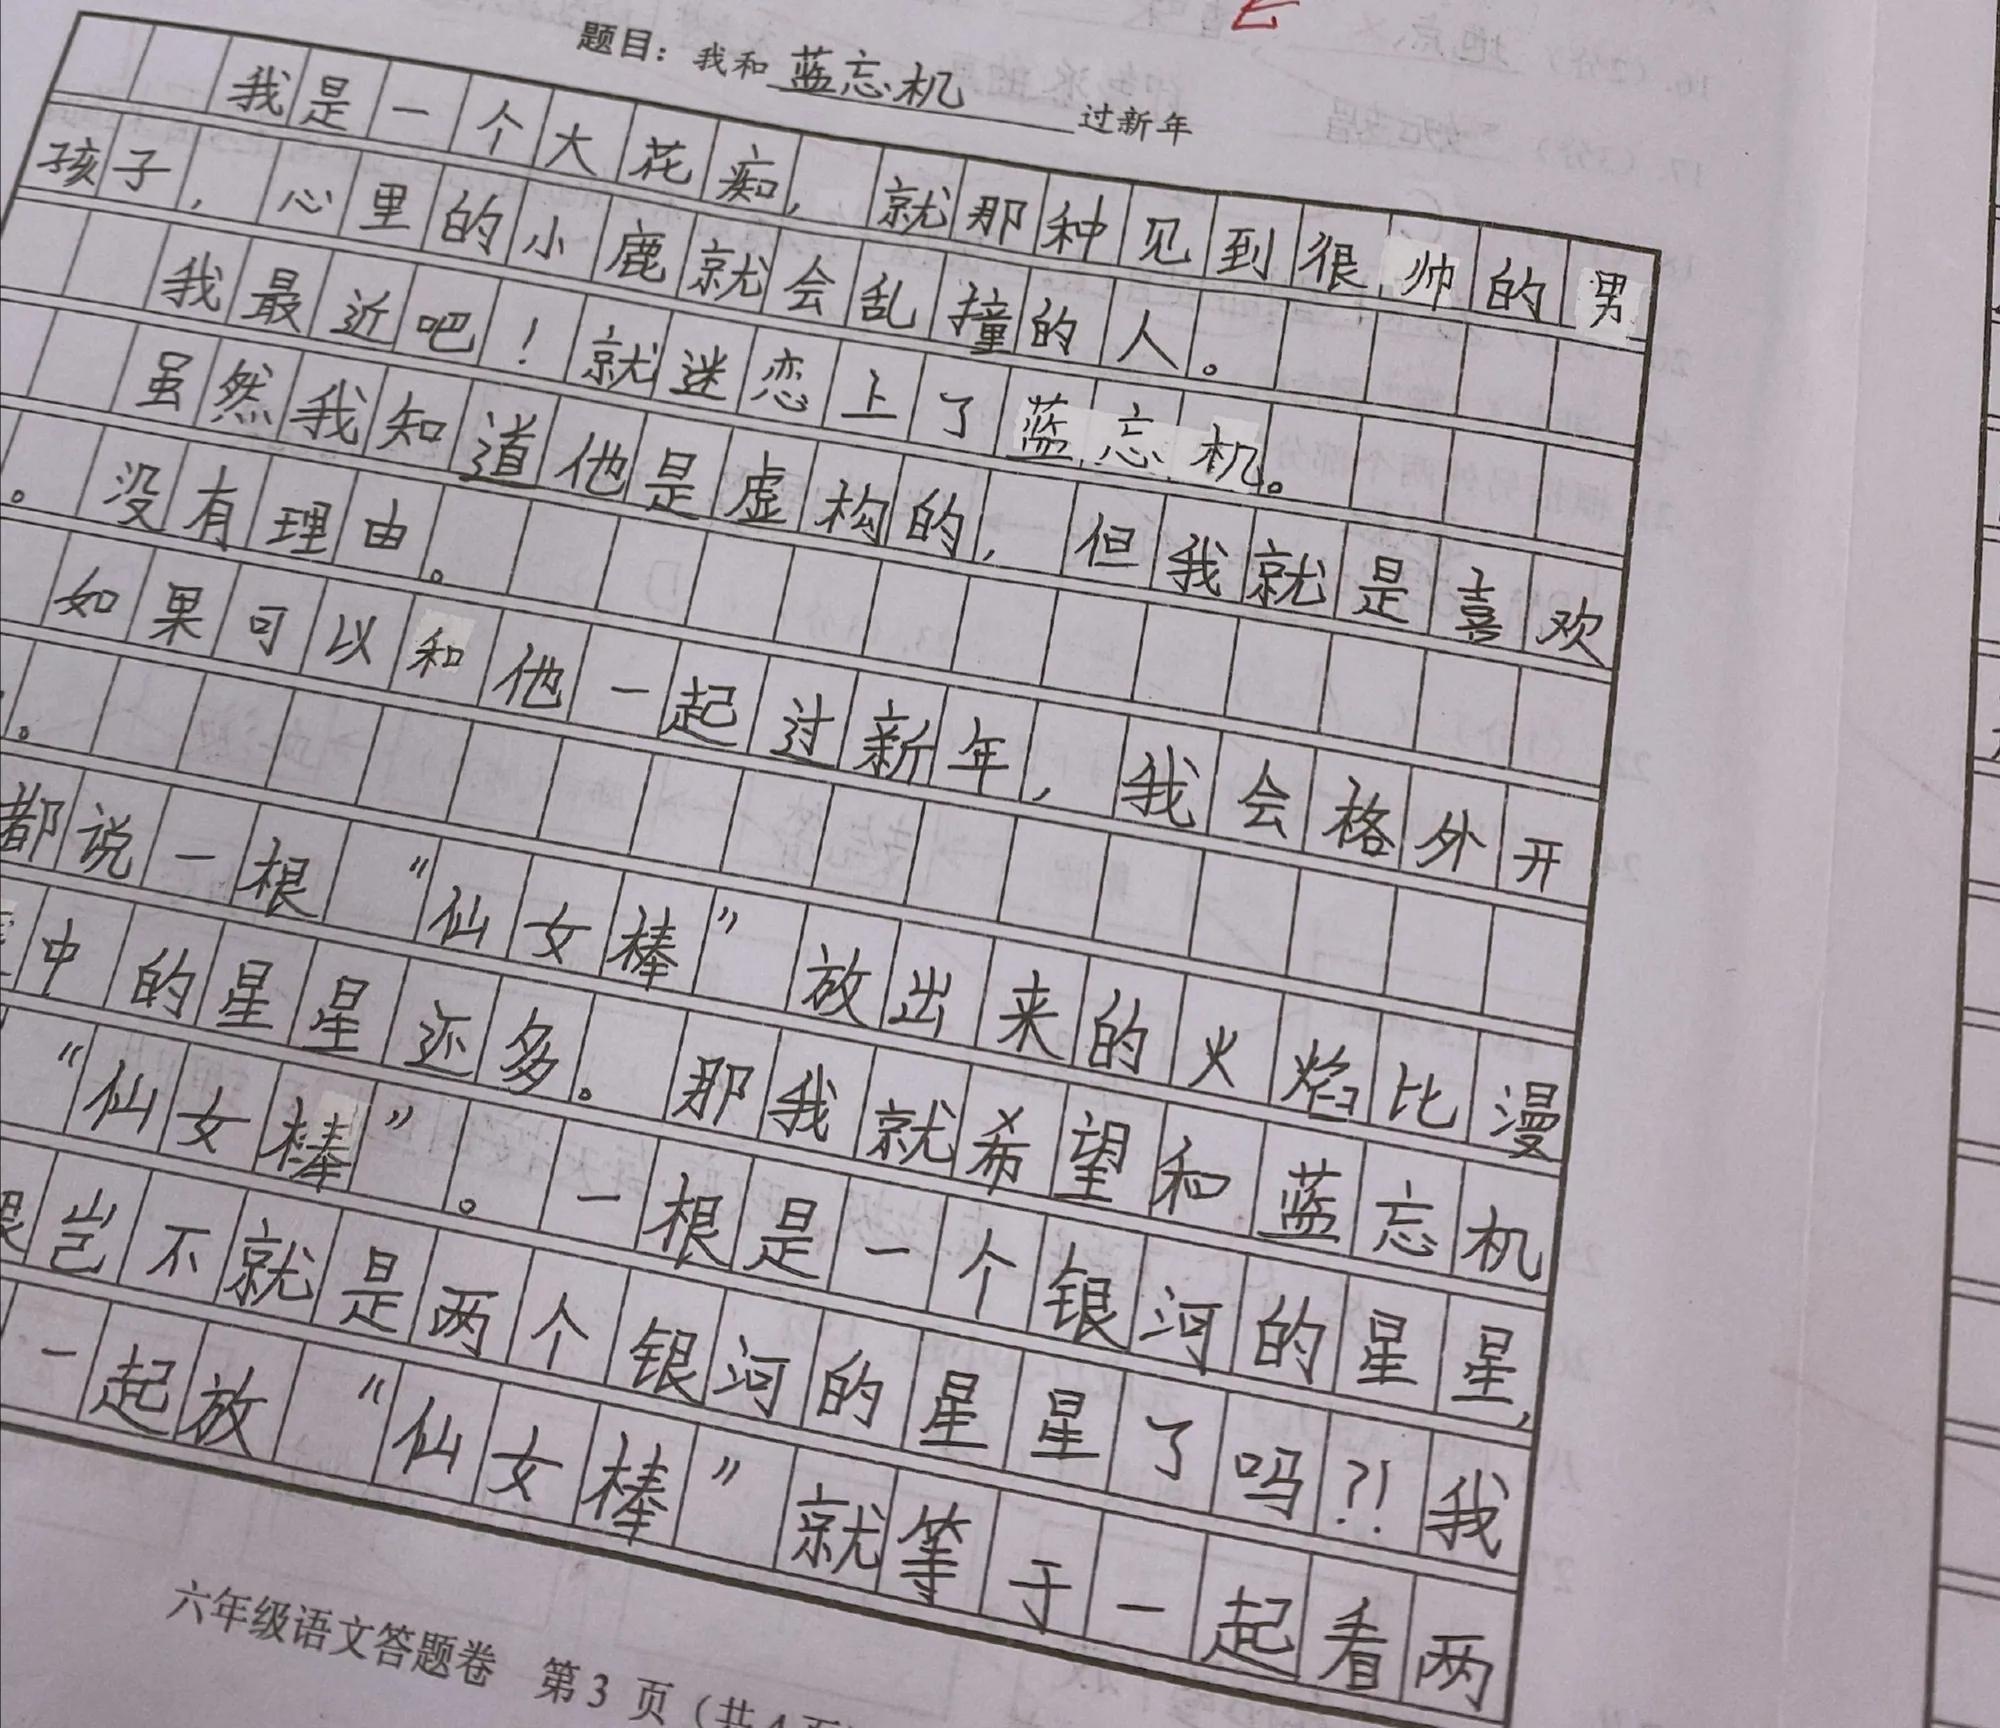 题目：我和蓝忘机过新年
我是一个大花痴，就那种见到很帅的男
孩子，心里的小鹿就会乱撞的人。
我最近吧！就迷恋上了蓝忘机。
虽然我知道他是虚构的，但我就是喜欢
。没有理由。
如果可以和他一起过新年，我会格外开
。
都说一根“仙女棒”放出来的火焰比漫
中的星星还多。那我就希望和蓝忘机
“仙女棒”。一根是一个银河的星星，
岂不就是两个银河的星星了吗？！我
一起放“仙女棒”就等于一起看两
六年级语文答题卷 第3页（共4页